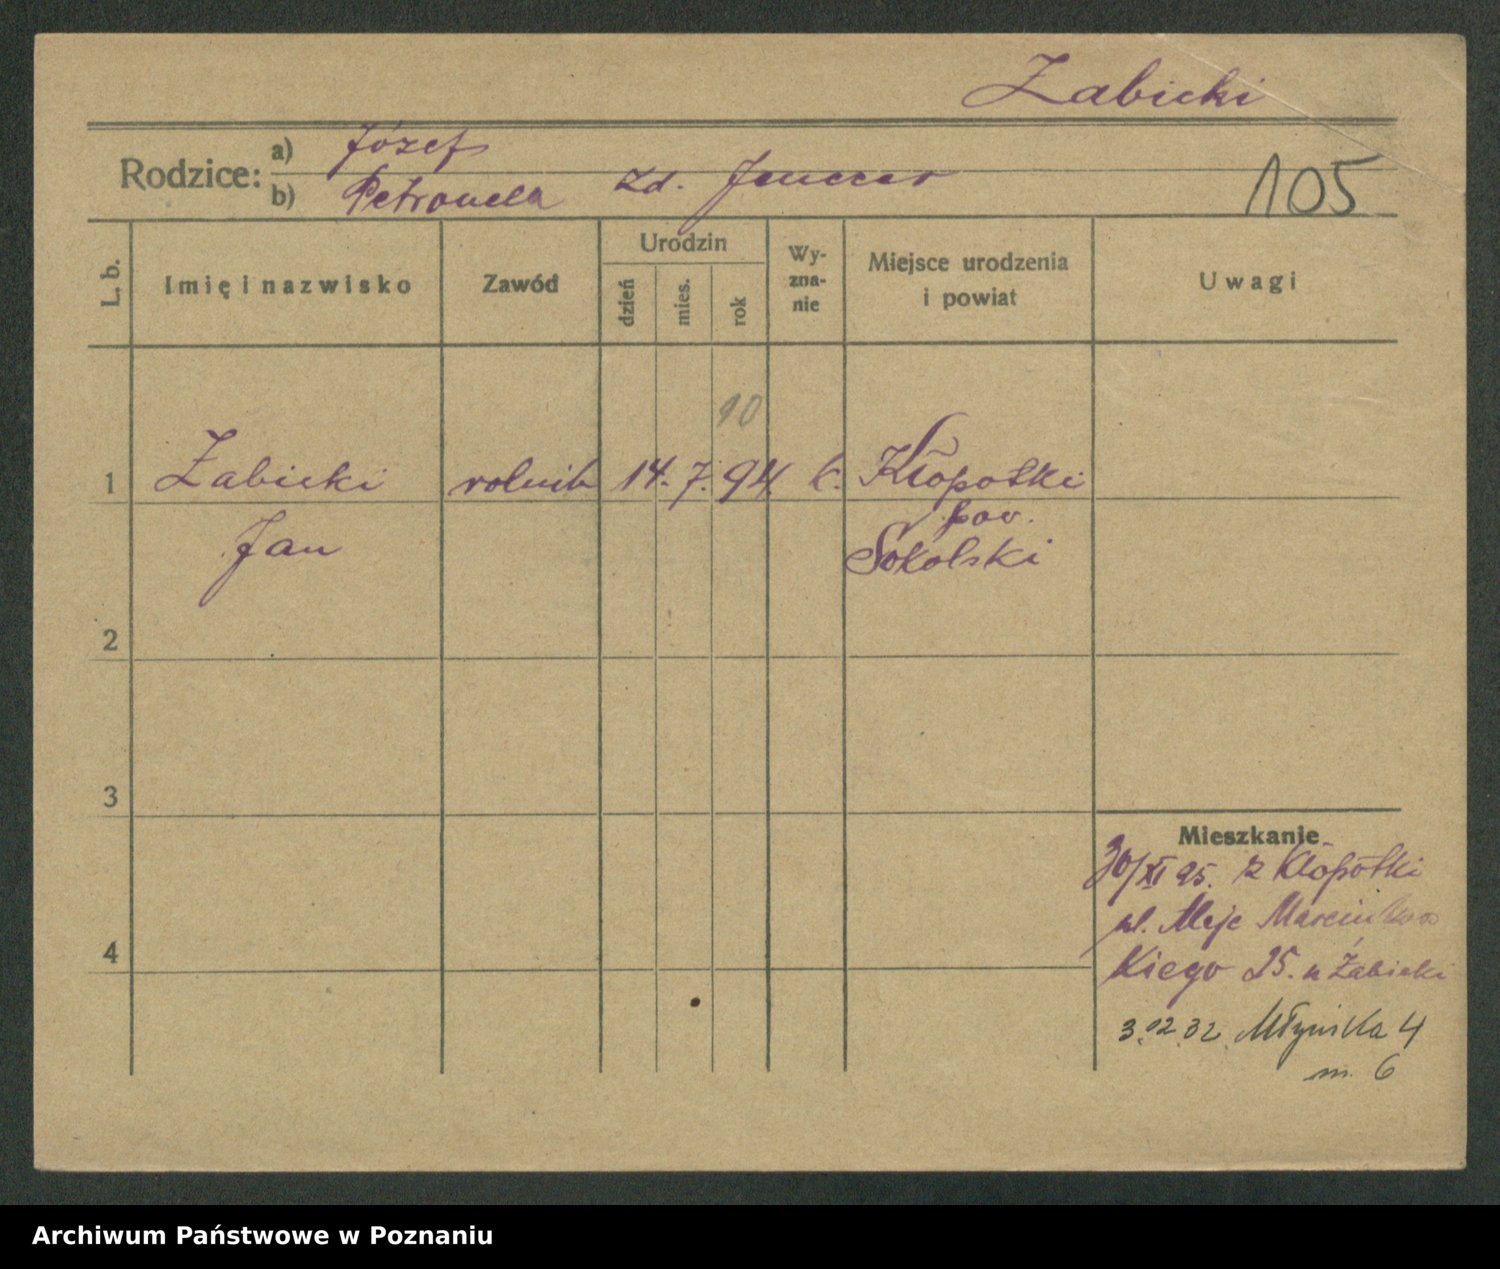 Żabicki
Rodzice:
a) Józef
b) Petronela zd.
105
L. b.
Imię i nazwisko
Zawód
Urodzin
dzień
mies.
rok
Wy-
zna-
nie
Miejsce urodzenia
i powiat
Uwagi
10
1 Żabicki rolnik 14. 7. 94 k. Kłopotki
pow.
Jan Sokolski
2
3
4
Mieszkanie
30/XI 25. z Kłopotki
ul. Aleje Marcinkow
kiego 25. u Żabicki
3.12.32. Młyńska 4
m. 6
Archiwum Państwowe w Poznaniu